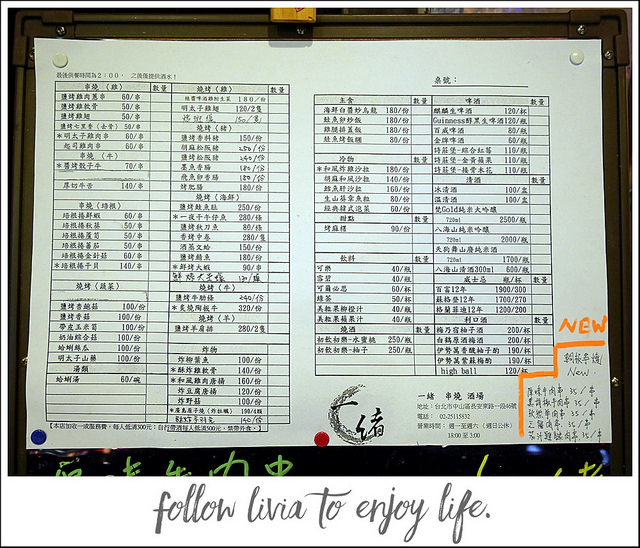 最後供餐時間為2:00, 之後僅提供酒水!
串燒(雞) 數量
鹽烤雞肉蔥串 60/串
鹽烤雞軟骨 50/串
鹽烤雞翅 50/串
鹽烤七里香(去骨) 50/串
*明太子雞肉串 60/串
起司雞肉串 60/串
串燒(牛)
*醬烤骰子牛 70/串
厚切牛舌 140/串
串燒(培根) 數量
培根捲鮮蝦 60/串
培根捲秋葵 50/串
培根捲蘆筍 50/串
培根捲蕃茄 50/串
培根捲金針菇 60/串
*培根捲干貝 140/串
燒烤(蔬菜)
鹽烤杏鮑菇 100/份
鹽烤香菇 100/份
帶皮玉米筍 100/份
奶油綜合菇 100/份
蛤蜊絲瓜 100/份
明太子山藥 100/份
湯類
蛤蜊湯 60/碗
燒烤(雞) 數量
180/份
明太子雞翅 120/2隻
150/隻
燒烤(豬)
鹽烤香料豬 150/份
胡麻松阪豬 250/份
鹽烤松阪豬 240/份
墨魚香腸 180/份
飛魚卵香腸 180/份
烤肥腸 180/份
燒烤(海鮮)
鹽烤鮭魚肚 250/份
*一夜干午仔魚 280/條
鹽烤秋刀魚 80/條
香烤中卷 280/隻
酒蒸文蛤 150/份
鹽烤鯖魚 180/份
*鮮烤大蝦 90/串
燒烤(牛)
鹽烤牛肋條 240/份
*炙燒陶板牛 320/份
燒烤(羊)
鹽烤羊肩排 280/2隻
炸物
炸柳葉魚 100/份
*酥炸雞軟骨 140/份
*和風雞肉唐揚 160/份
炸豆腐 120/份
炸野菇 100/份
*廣島厚子燒(炸牡蠣) 190/4顆
140/份
【本店加收一成服務費,每人低消300元;自行帶酒每人低消500元,禁帶外食。】
桌號:
主食 數量
海鮮白醬炒烏龍 180/份
鮭魚卵炒飯 180/份
雞腿排蓋飯 180/份
鮭魚烤飯糰 80/份
冷物 數量
*和風炸雞沙拉 180/份
胡麻和風沙拉 140/份
鱈魚肝沙拉 160/份
生山葵章魚粒 80/份
經典韓式泡菜 60/份
甜點 數量
烤麻糬 90/份
飲料 數量
可樂 40/瓶
雪碧 40/瓶
可爾必思 60/杯
綠茶 50/杯
美粒果柳橙汁 40/瓶
美粒果蘋果汁 40/瓶
燒酒 數量
初飲初樂-水蜜桃 250/瓶
初飲初樂-柚子 250/瓶
啤酒 數量
麒麟生啤酒 120/杯
Guinness醇黑生啤酒 120/瓶
百威啤酒 80/瓶
金牌啤酒 60/瓶
詩莊堡-綜合紅莓 110/瓶
詩莊堡-金黃蘋果 110/瓶
詩莊堡-接骨木花 110/瓶
清酒 數量
冰清酒 100/盅
溫清酒 100/盅
梵Gold純米大吟釀
720ml 2500/瓶
八海山純米吟釀
720ml 2000/瓶
天狗舞山廢純米酒
720ml 1700/瓶
八海山清酒300ml 600/瓶
威士忌 瓶/杯 數量
百富12年 1900/300
蘇格登12年 1700/270
格蘭菲迪12年 1200/200
利口酒 數量
梅乃宿柚子酒 200/杯
白鶴原酒梅酒 200/杯
伊勢萬香酸柚子酌 190/杯
伊勢萬紫蘇梅酌 190/杯
high ball 120/杯
一緒 串燒 酒場
地址:台北市中山區長安東路一段46號
電話: 02-25115832
營業時間: 週一至週六 (週日公休)
18:00至3:00
一緒
NEW
銅板串燒/
New.
35/串
黑胡椒牛肉串 35/串
35/串
35/串
35/串
follow livia to enjoy life.